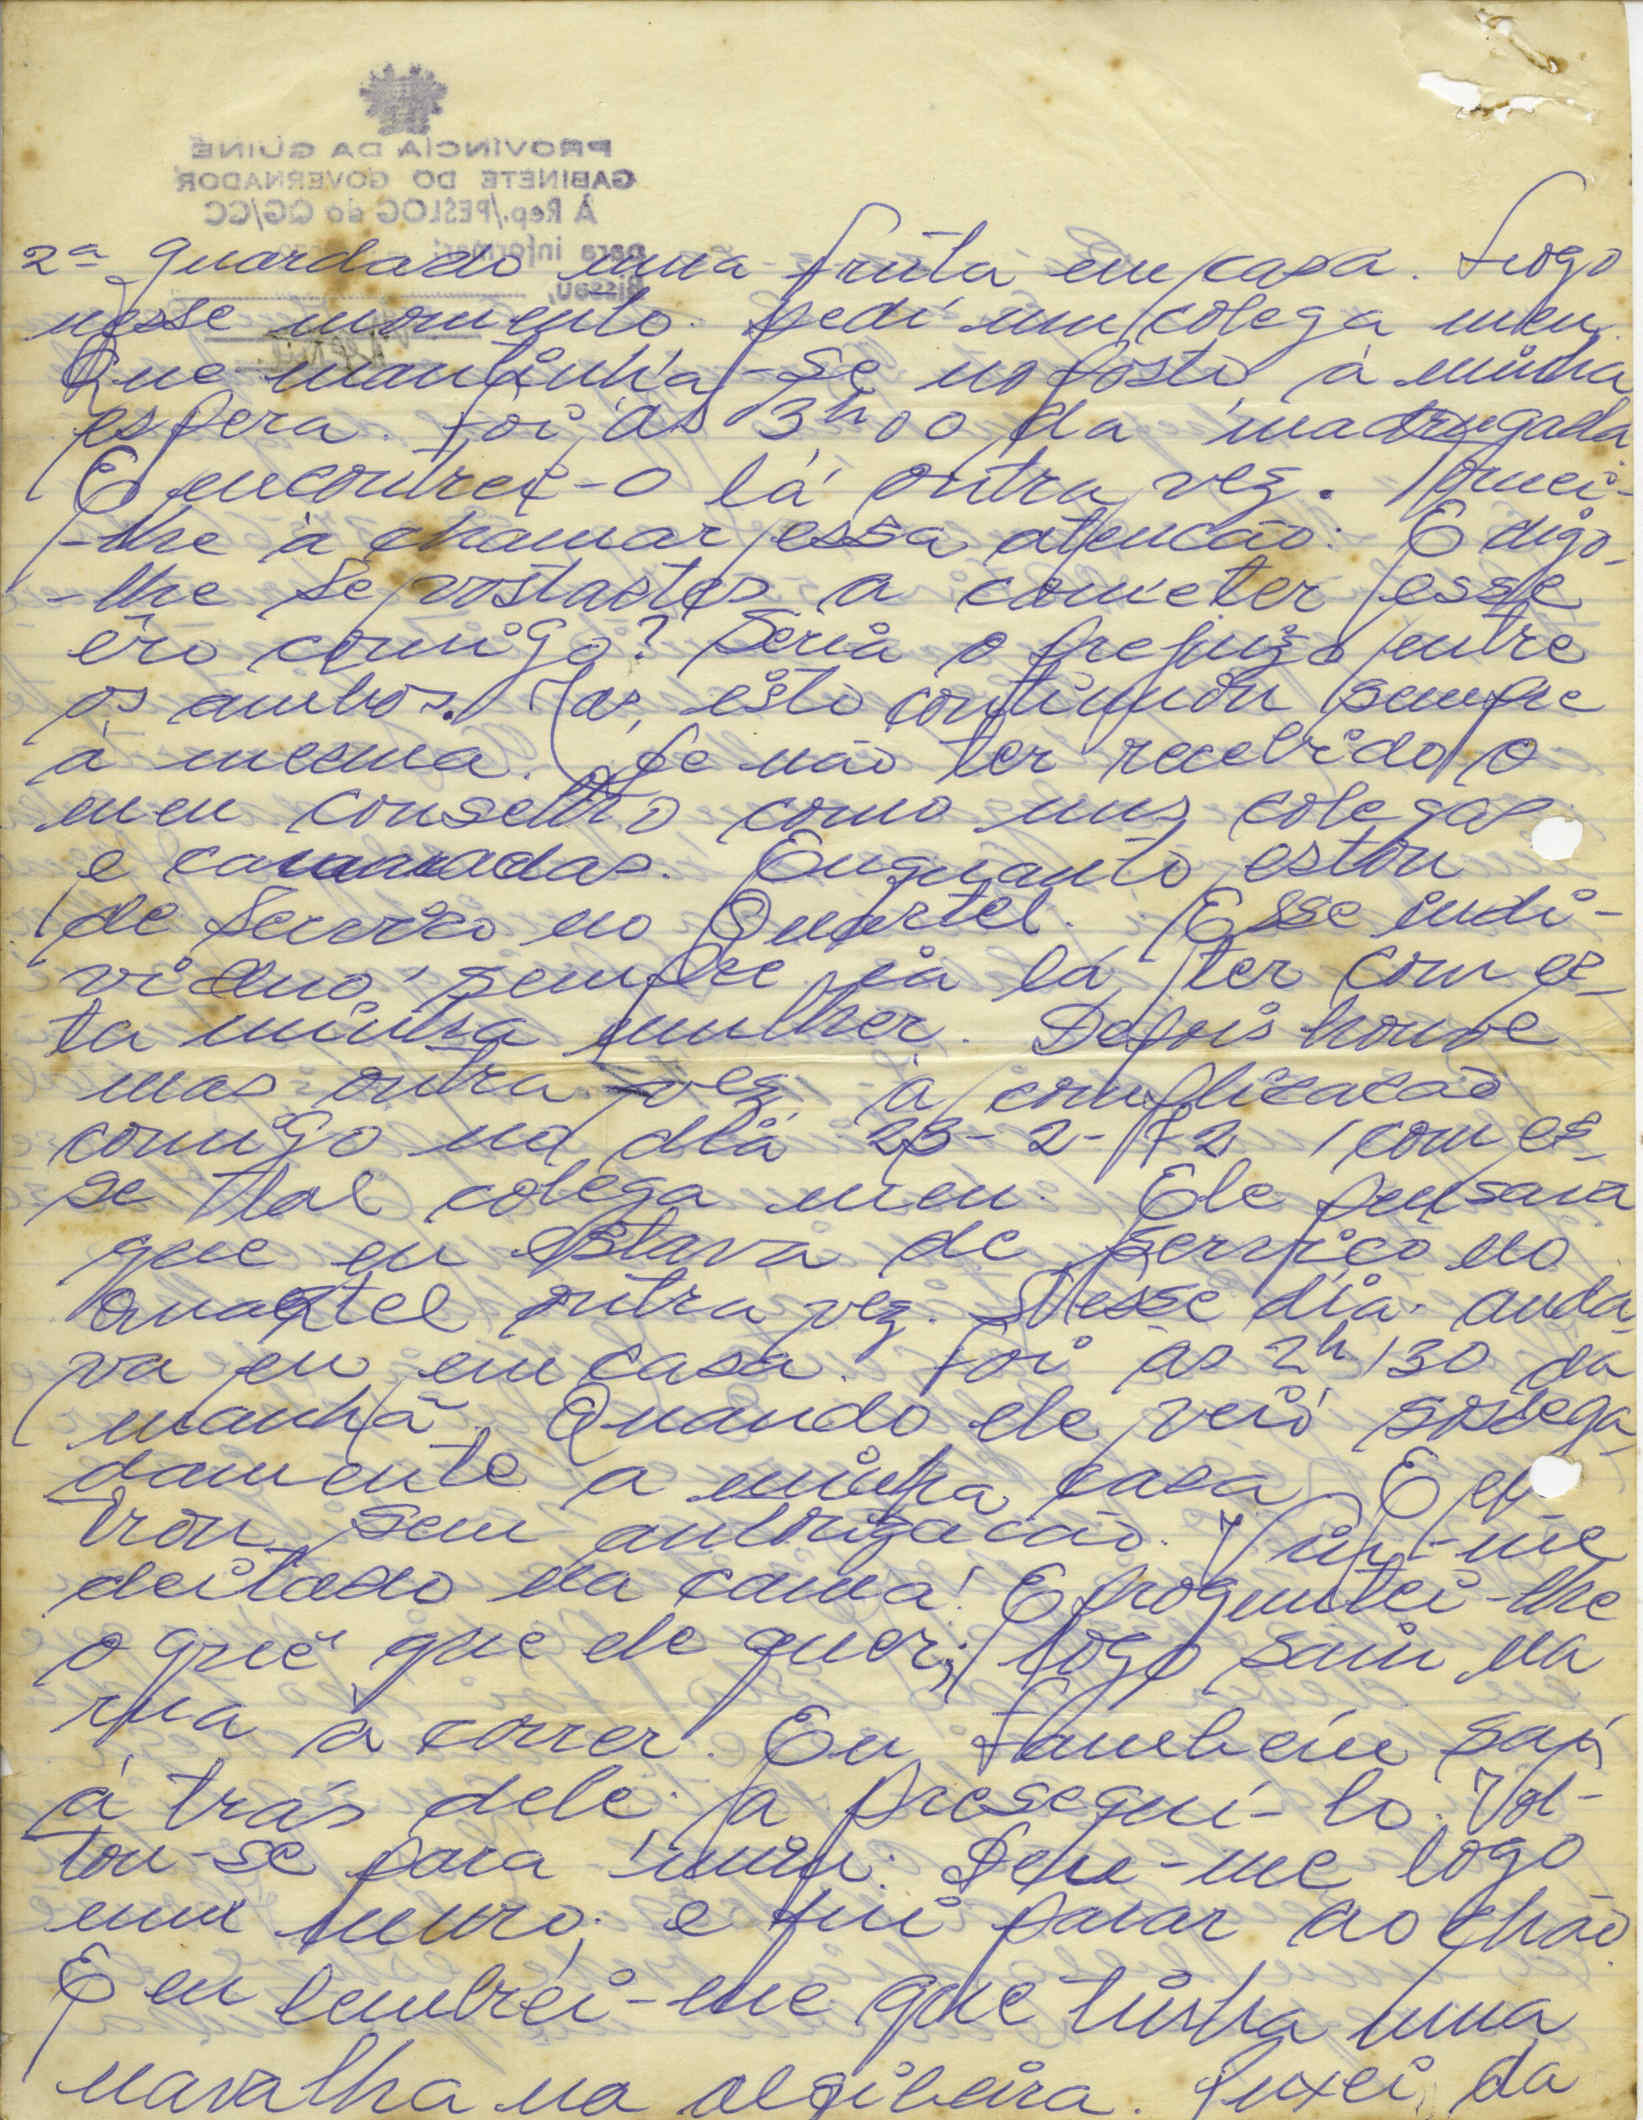 PROVÍNCIA DA GUINÉ
GABINETE DO GOVERNADOR
À Rep./PESLOG do QG/CC
para informar:
Bissau,
2ª guardado uma frúta em casa. Logo
nesse momento. Pedi um colega meu.
Que mantinha-se no posto à minha
espera. Foi às 3h00 da madrugada
E encontrei-o lá outra vez.
-lhe à chamar essa atencão: E digo-
-lhe se voltastes a cometer esse
êro comigo? Seria o prejuizo entre
os ambos. Mas, isto continuou sempre
à mesma. Pe não ter recebido o
meu conselho como uns colegas
e camaradas. Enquanto estou
de Servico no Quartel. Esse indi-
viduo sempre ia lá ter com es-
ta minha mulher. Depois houve
mas outra vez a complicacão
comigo no dia 23-2-72 com es-
se tal colega meu. Ele pensava
que eu estava de serviço no
quartel outra vez. Nesse dia. anda
va eu em casa. Foi às 2h/30 da
manhã. Quando ele veiò sossega
damente a minha casa E en
trou sem autorizacão. Viu-me
deitado na cama! E proguntei-lhe
o quê que ele quer; logo saiu na
rua à correr. Eu tambeím saí
á trás dele. a preseguí-lo. Vol-
tou-se para mim. Deu-me logo
um murro; e fui parar ao chão.
E eu lembrei-me que tinha uma
navalha na algibeira. Puxei da